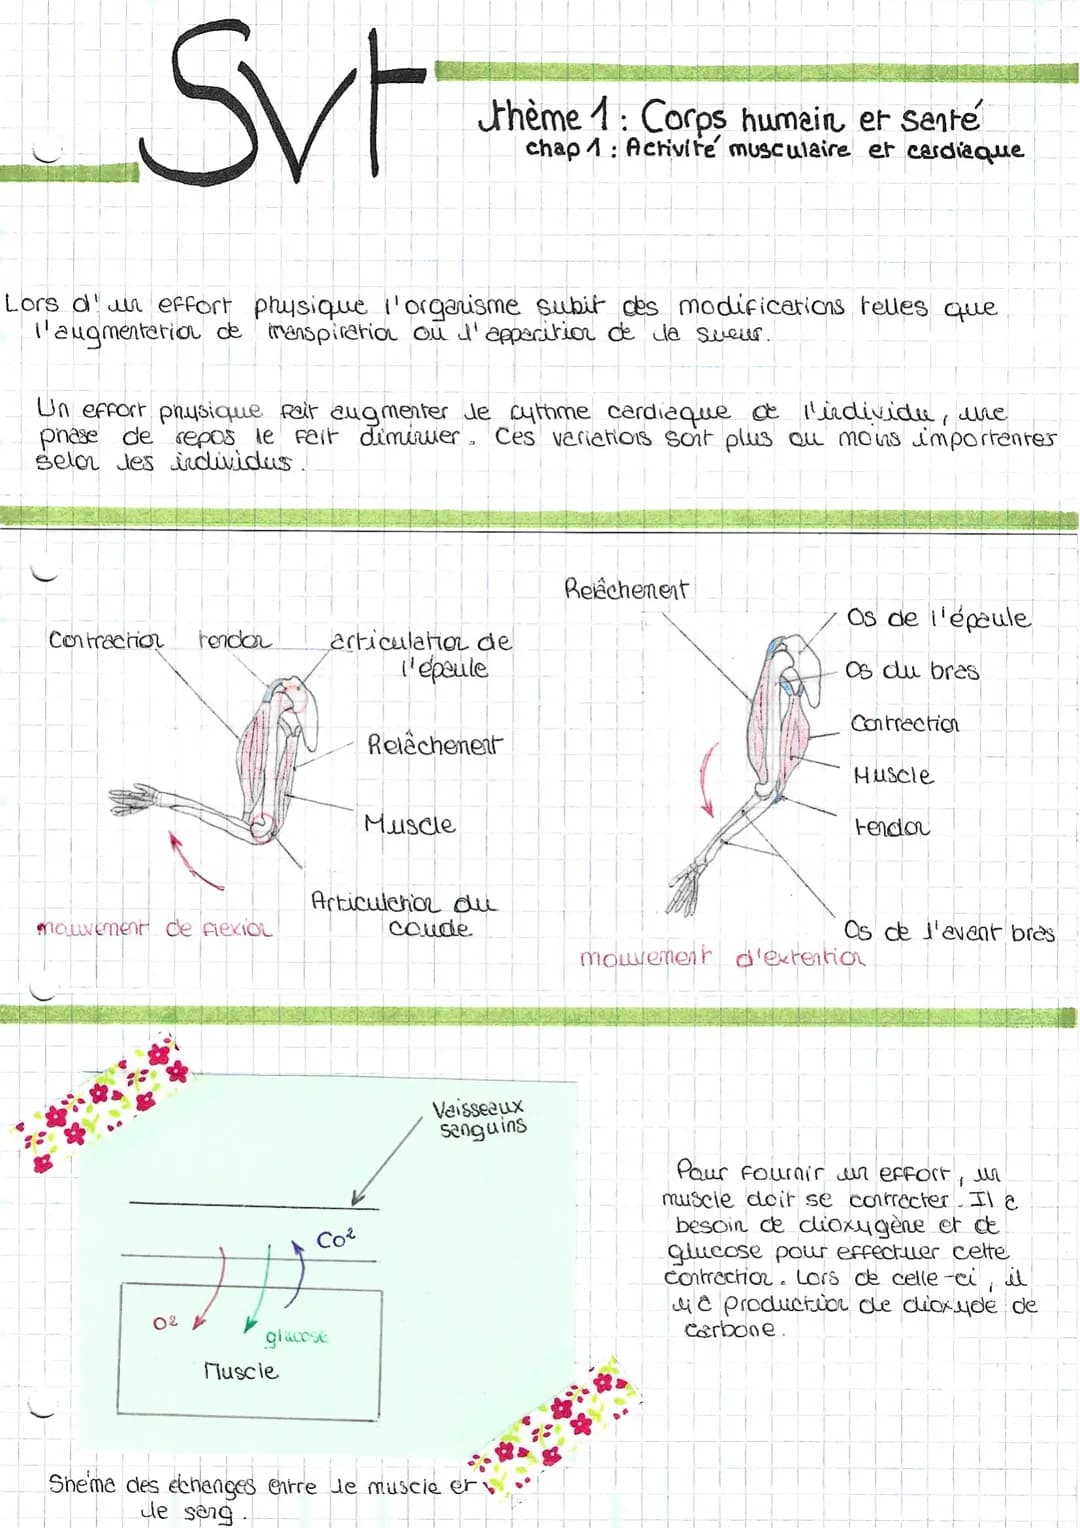 SVT
thème 1 : Corps humain et santé
chap 1 : Activité musculaire et cardiaque
Lors d'un effort physique l'organisme subit des modifications telles que
l'augmentation de transpiration ou l'apparition de la sueur.
Un effort physique fait augmenter le rythme cardiaque de l'individu, une
phase de repos le fait diminuer. Ces variations sont plus ou moins importantes
selon les individus.
Contraction
tendon
articulation de
l'épaule
Relâchement
Muscle
Articulation du
coude
mouvement de flexion
Relâchement
Os de l'épaule
Os du bras
Contraction
Muscle
tendon
Os de l'avant bras
mouvement d'extention
Vaisseaux
sanguins
Co²
O²
glucose
Muscle
Shéma des échanges entre le muscle et
le sang.
Pour fournir un effort, un
muscle doit se contracter. Il a
besoin de dioxygène et de
glucose pour effectuer cette
contraction. Lors de celle-ci, il
y a production de dioxyde de
carbone.